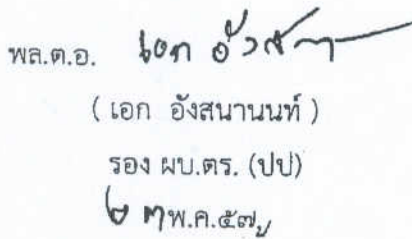 พล.ต.อ. เอก อังส
( เอก อังสนานนท์ )
รอง ผบ.ตร. (ปป)
๒๓ พ.ค.๕๗